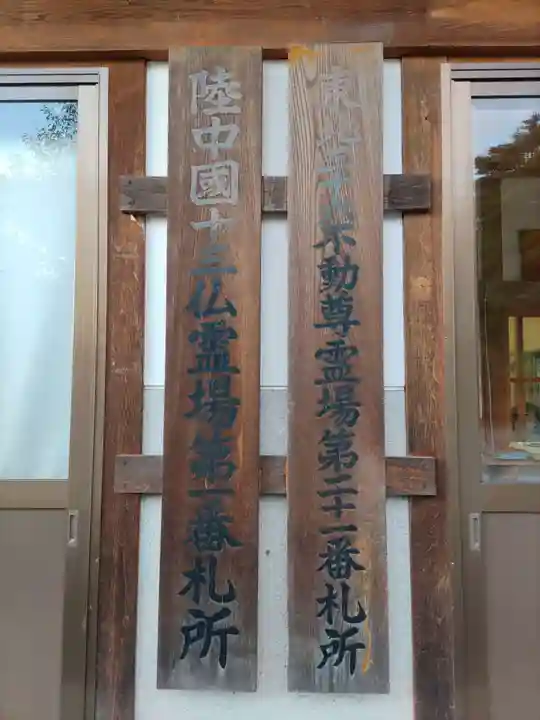 東北三十六不動尊霊場第二十一番札所
陸中國十三仏霊場第一番札所